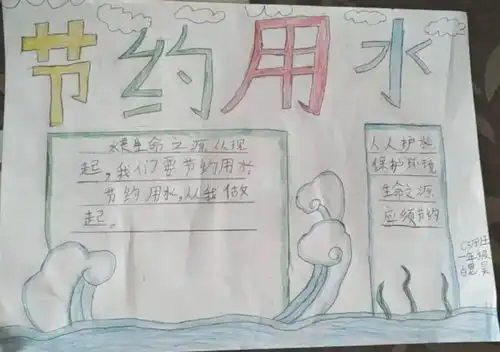 节约用水
水是生命之源从现
起,我们要节约用水
节约用水,从我做
起。
人人护水
保护环境
生命之源
应须节约
一年级